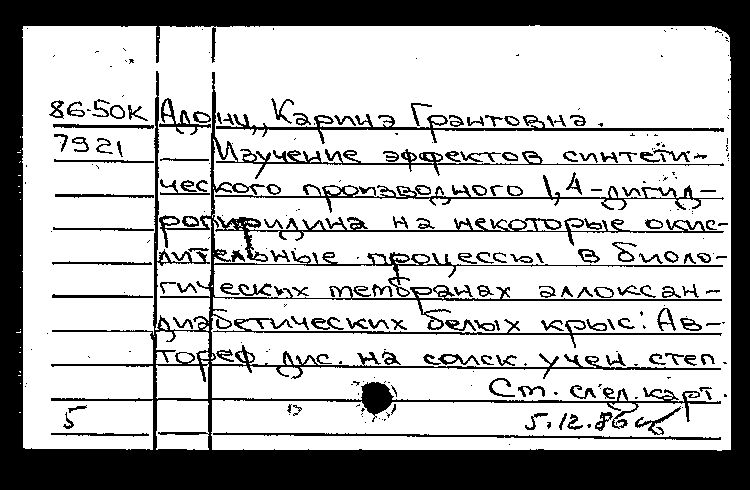 86-50К Адонц, Карина Грантовна.
7921 Изучение эффектов синтети-
ческого производного 1,4-дигид-
ропиридина на некоторые окис-
лительные процессы в биоло-
гических мембранах аллоксан-
диабетических белых крыс: Ав-
тореф. дис. на соиск. учен. степ.
См. след. карт.
5 5.12.86